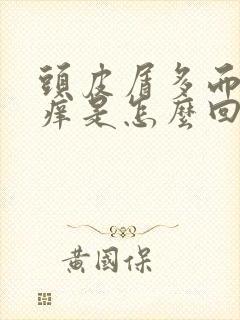 頭皮屑多而
癢是怎麼回
黃國保